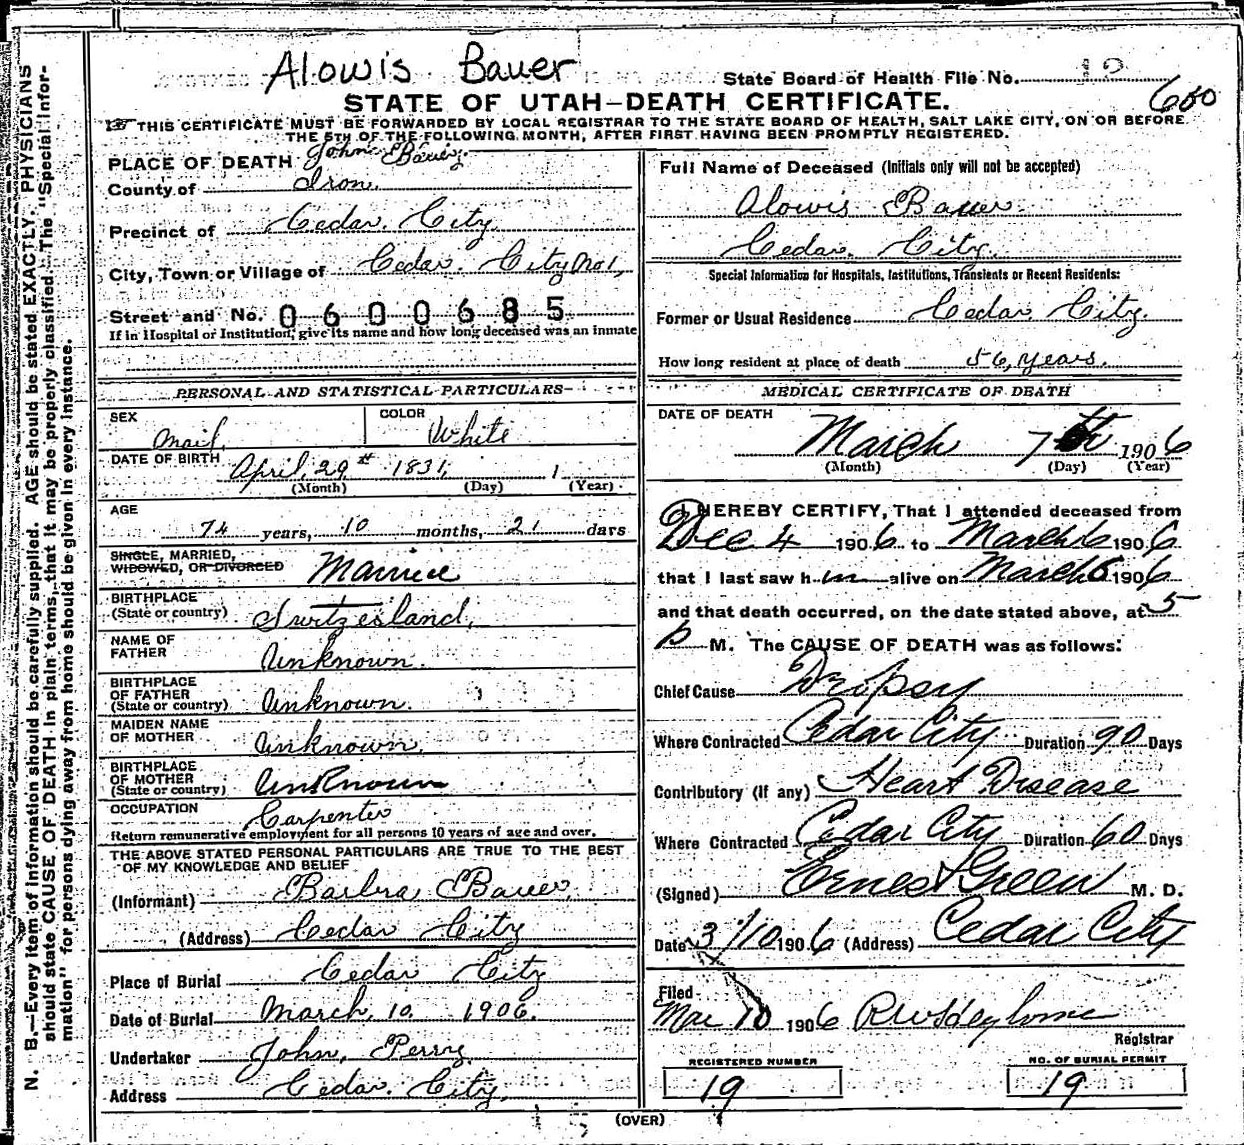 Alowis Bauer
State Board of Health File No. 12
600
STATE OF UTAH—DEATH CERTIFICATE.
THIS CERTIFICATE MUST BE FORWARDED BY LOCAL REGISTRAR TO THE STATE BOARD OF HEALTH, SALT LAKE CITY, ON OR BEFORE
THE 5TH OF THE FOLLOWING MONTH, AFTER FIRST HAVING BEEN PROMPTLY REGISTERED.
PLACE OF DEATH John Bauer
County of Iron
Precinct of Cedar City
City, Town or Village of Cedar City No 1,
Street and No. 0600685
If in Hospital or Institution, give its name and how long deceased was an inmate
PERSONAL AND STATISTICAL PARTICULARS
SEX Mail
COLOR White
DATE OF BIRTH April, 29th 1831, 1
(Month) (Day) (Year)
AGE
74 years, 10 months, 21 days
SINGLE, MARRIED,
WIDOWED, OR DIVORCED Married
BIRTHPLACE
(State or country) Swrtzesland,
NAME OF
FATHER Unknown.
BIRTHPLACE
OF FATHER
(State or country) Unknown.
MAIDEN NAME
OF MOTHER Unknown,
BIRTHPLACE
OF MOTHER
(State or country) Unknown
OCCUPATION Carpenter
Return remunerative employment for all persons 10 years of age and over.
THE ABOVE STATED PERSONAL PARTICULARS ARE TRUE TO THE BEST
OF MY KNOWLEDGE AND BELIEF
(Informant) Barbra Bauer,
(Address) Cedar City
Place of Burial Cedar City
Date of Burial March, 10, 1906.
Undertaker John, Perry
Address Cedar. City,
Full Name of Deceased (Initials only will not be accepted)
Alowis Bauer.
Cedar. City.
Special Information for Hospitals, Institutions, Transients or Recent Residents:
Former or Usual Residence Cedar City.
How long resident at place of death 56, years.
MEDICAL CERTIFICATE OF DEATH
DATE OF DEATH
March 7th 1906
(Month) (Day) (Year)
I HEREBY CERTIFY, That I attended deceased from
Dec 4 1906 to March 6 1906
that I last saw him alive on March 6 1906
and that death occurred, on the date stated above, at 5
P M. The CAUSE OF DEATH was as follows:
Chief Cause Dropsy
Where Contracted Cedar City Duration 90 Days
Contributory (if any) Heart Disease
Where Contracted Cedar City Duration 60 Days
(Signed) Ernest Green M. D.
Date 3/10 1906 (Address) Cedar City
Filed
Mar 10 1906
Registrar
REGISTERED NUMBER
19
NO. OF BURIAL PERMIT
19
(OVER)
N. B.—Every item of information should be carefully supplied. AGE should be stated EXACTLY. PHYSICIANS
should state CAUSE OF DEATH in plain terms, that it may be properly classified. The "Special Infor-
mation" for persons dying away from home should be given in every instance.